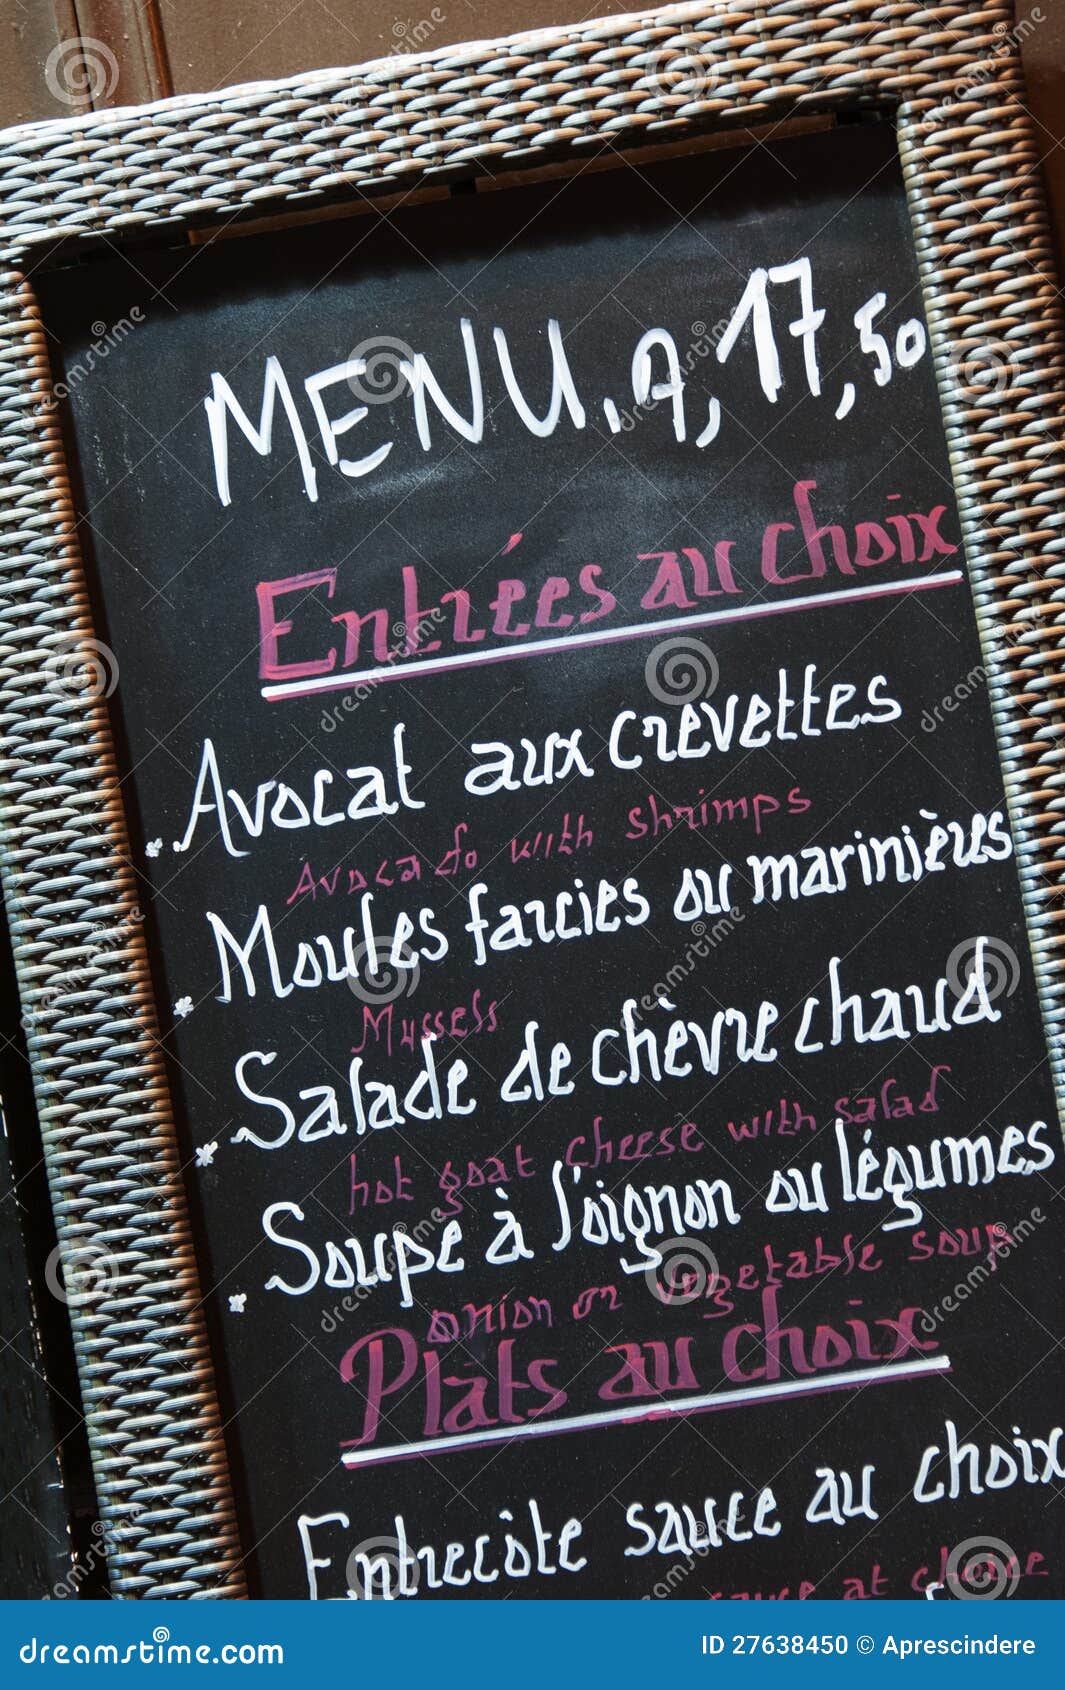 MENU. A, 17,50
Entrées au choix
Avocat aux crevettes
Avocado with shrimps
Moules farcies ou marinières
Mussels
Salade de chèvre chaud
hot goat cheese with salad
Soupe à l'oignon ou légumes
onion or vegetable soup
Plats au choix
Entrecôte sauce au choix
sauce at choice
dreamstime.com
ID 27638450 © Aprescindere